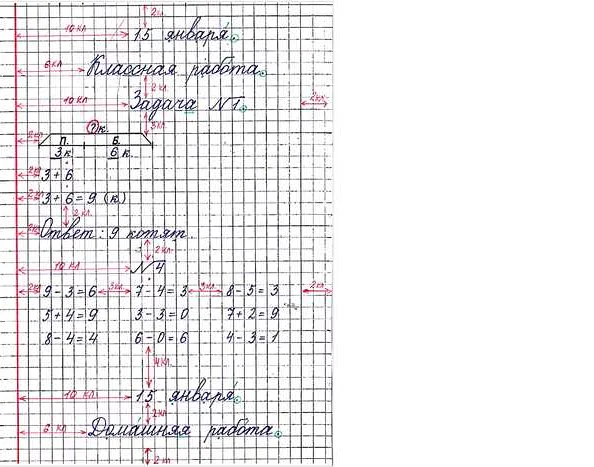 2 кл
10 кл 15 января.
6 кл Классная работа.
2 кл
10 кл Задача №1. 2 кл
3 кл
?к.
2 кл П. Б.
3 к. 6 к.
2 кл 3 + 6
2 кл 3 + 6 = 9 (к.)
2 кл.
2 кл Ответ: 9 котят.
2 кл
10 кл №4
2 кл 9 - 3 = 6 3 кл 7 - 4 = 3 3 кл 8 - 5 = 3 2 кл
5 + 4 = 9 3 - 3 = 0 7 + 2 = 9
8 - 4 = 4 6 - 0 = 6 4 - 3 = 1
4 кл.
10 кл 15 января.
2 кл
6 кл Домашняя работа.
2 кл